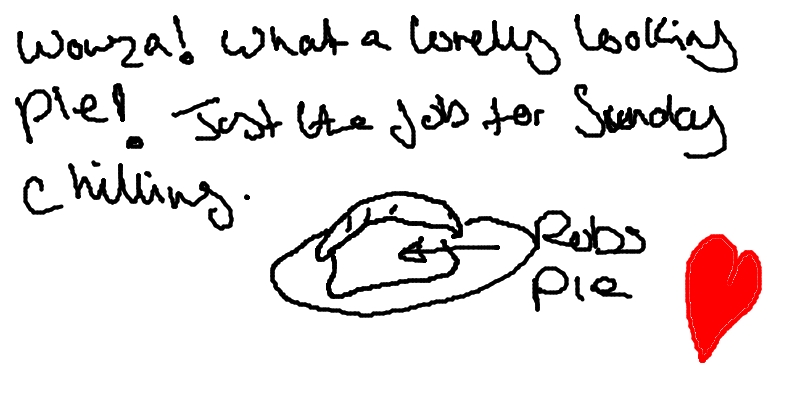 Wowza! What a lovelly looking
pie! Just the job for Sunday
chilling.
Robs
pie